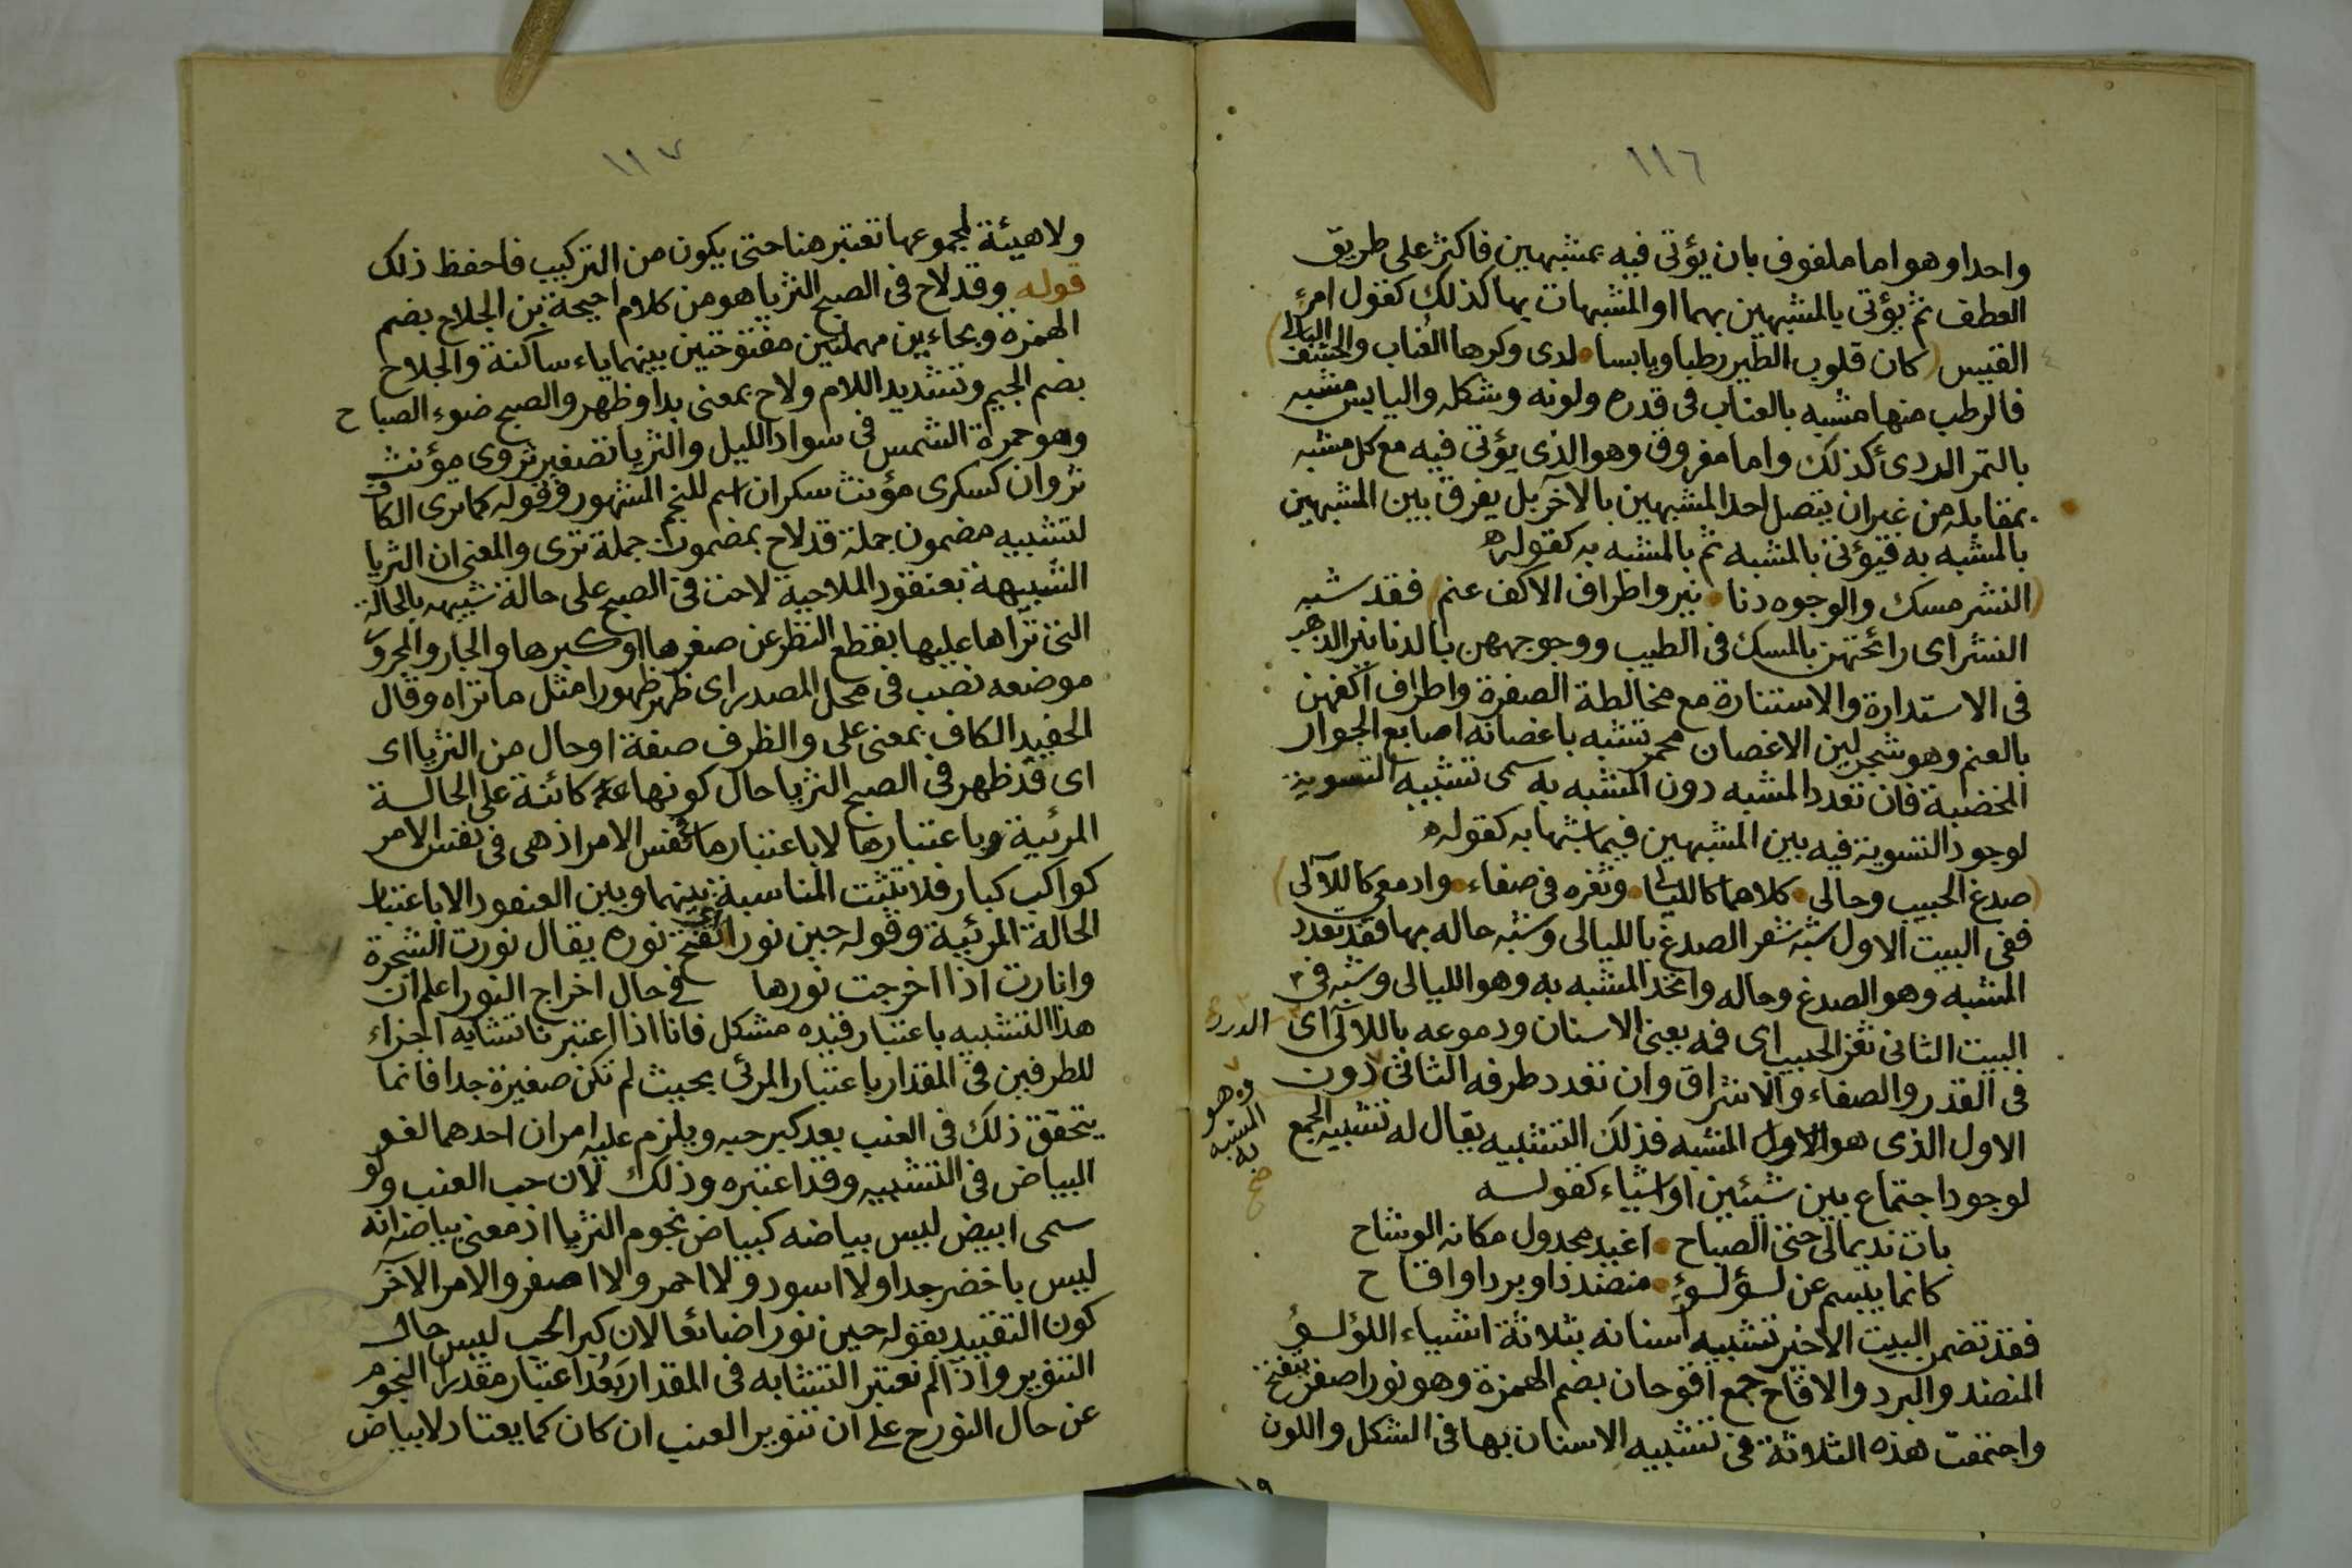 ١١٦
واحدا وهو اما ملفوف بان يؤتى فيه بمشبهين فاكثر على طريق
العطف ثم يؤتى بالمشبهين بهما او المشبهات بها كذلك كقول امرء
القيس (كان قلوب الطير رطبا ويابسا • لدى وكرها العناب والحشف البالى)
فالرطب منها مشبه بالعناب فى قدره ولونه وشكله واليابس مشبه
بالتمر الردى كذلك واما مفروق وهو الذى يؤتى فيه مع كل مشبه
بمقابله من غير ان يتصل احد المشبهين بالآخر بل يفرق بين المشبهين
بالمشبه به فيؤتى بالمشبه ثم بالمشبه به كقوله
(النشر مسك والوجوه دنا • نير واطراف الاكف عنم) فقد شبه
النشر اى رائحتهن بالمسك فى الطيب ووجوههن بالدنانير الذهب
فى الاستدارة والاستنارة مع مخالطة الصفرة واطراف اكفهن
بالعنم وهو شجر لين الاغصان محمر تشبه باغصانه اصابع الجوار
المخضبة فان تعدد المشبه دون المشبه به سمى تشبيه التسوية
لوجود التسوية فيه بين المشبهين فيما شبها به كقوله
(صدغ الحبيب وحالى • كلاهما كالليالى • وثغره فى صفاء • وادمعى كاللآلى)
ففى البيت الاول شبه شعر الصدغ بالليالى وشبه حاله بها فقد تعدد
المشبه وهو الصدغ وحاله واتحد المشبه به وهو الليالى وشبه فى
البيت الثانى ثغر الحبيب اى فمه يعنى الاسنان ودموعه باللآلى اى الدرر
فى القدر والصفاء والاشراق وان تعدد طرفه الثانى دون
وهو المشبه به صح
الاول الذى هو الاول المشبه فذلك التشبيه يقال له تشبيه الجمع
لوجود اجتماع بين شيئين او اشياء كقوله
بات نديما لى حتى الصباح • اغيد مجدول مكان الوشاح
كانما يبسم عن لؤلؤ • منضد او برد او اقاح
فقد تضمن البيت الاخير تشبيه اسنانه بثلاثة اشياء اللؤلؤ
المنضد والبرد والاقاح جمع اقوحان بضم الهمزة وهو نور اصفر
واجتمعت هذه الثلاثة فى تشبيه الاسنان بها فى الشكل واللون
١٩
١١٧
ولا هيئة لمجموعها تعتبر هنا حتى يكون من التركيب فاحفظ ذلك
قوله وقد لاح فى الصبح الثريا هو من كلام احيحة بن الجلاح بضم
الهمزة وبحاءين مهملتين مفتوحتين بينهما ياء ساكنة والجلاح
بضم الجيم وتشديد اللام ولاح بمعنى بدا وظهر والصبح ضوء الصباح
وهو حمرة الشمس فى سواد الليل والثريا تصغير ثروى مؤنث
ثروان كسكرى مؤنث سكران اسم للنجم المشهور وقوله كما ترى الكاف
لتشبيه مضمون جملة قد لاح بمضمون جملة ترى والمعنى ان الثريا
الشبيهة بعنقود الملاحية لاحت فى الصبح على حالة شبيهه بالحالة
التى تراها عليها بقطع النظر عن صغرها او كبرها والجار والمجرور
موضعه نصب فى محل المصدر اى ظهر ظهورا مثل ما تراه وقال
الحفيد الكاف بمعنى على والظرف صفة او حال من الثريا اى
اى قد ظهر فى الصبح الثريا حال كونها كائنة على الحالة
المرئية وباعتبارها لا باعتبار ما فى نفس الامر اذ هى فى نفس الامر
كواكب كبار فلا تثبت المناسبة بينهما وبين العنقود الا باعتبار
الحالة المرئية وقوله حين نورا اى تفتح نوره يقال نورت الشجرة
وانارت اذا اخرجت نورها فى حال اخراج النور اعلم ان
هذا التشبيه باعتبار قيده مشكل فانا اذا اعتبرنا تشابه اجزاء
للطرفين فى المقدار باعتبار المرئى بحيث لم تكن صغيرة جدا فانما
يتحقق ذلك فى العنب بعد كبر حبه ويلزم عليه امران احدهما لغو
البياض فى التشبيه وقد اعتبره وذلك لان حب العنب ولو
سمى ابيض ليس بياضه كبياض نجوم الثريا اذ معنى بياضه انه
ليس باخضر جدا ولا اسود ولا احمر ولا اصفر والامر الآخر
كون التقييد بقوله حين نورا ضائعا لان كبر الحب ليس حال
التنوير واذا لم نعتبر التشابه فى المقدار بعد اعتبار مقدار النجوم
عن حال النور ح على ان تنوير العنب ان كان كما يعتاد لا بياض